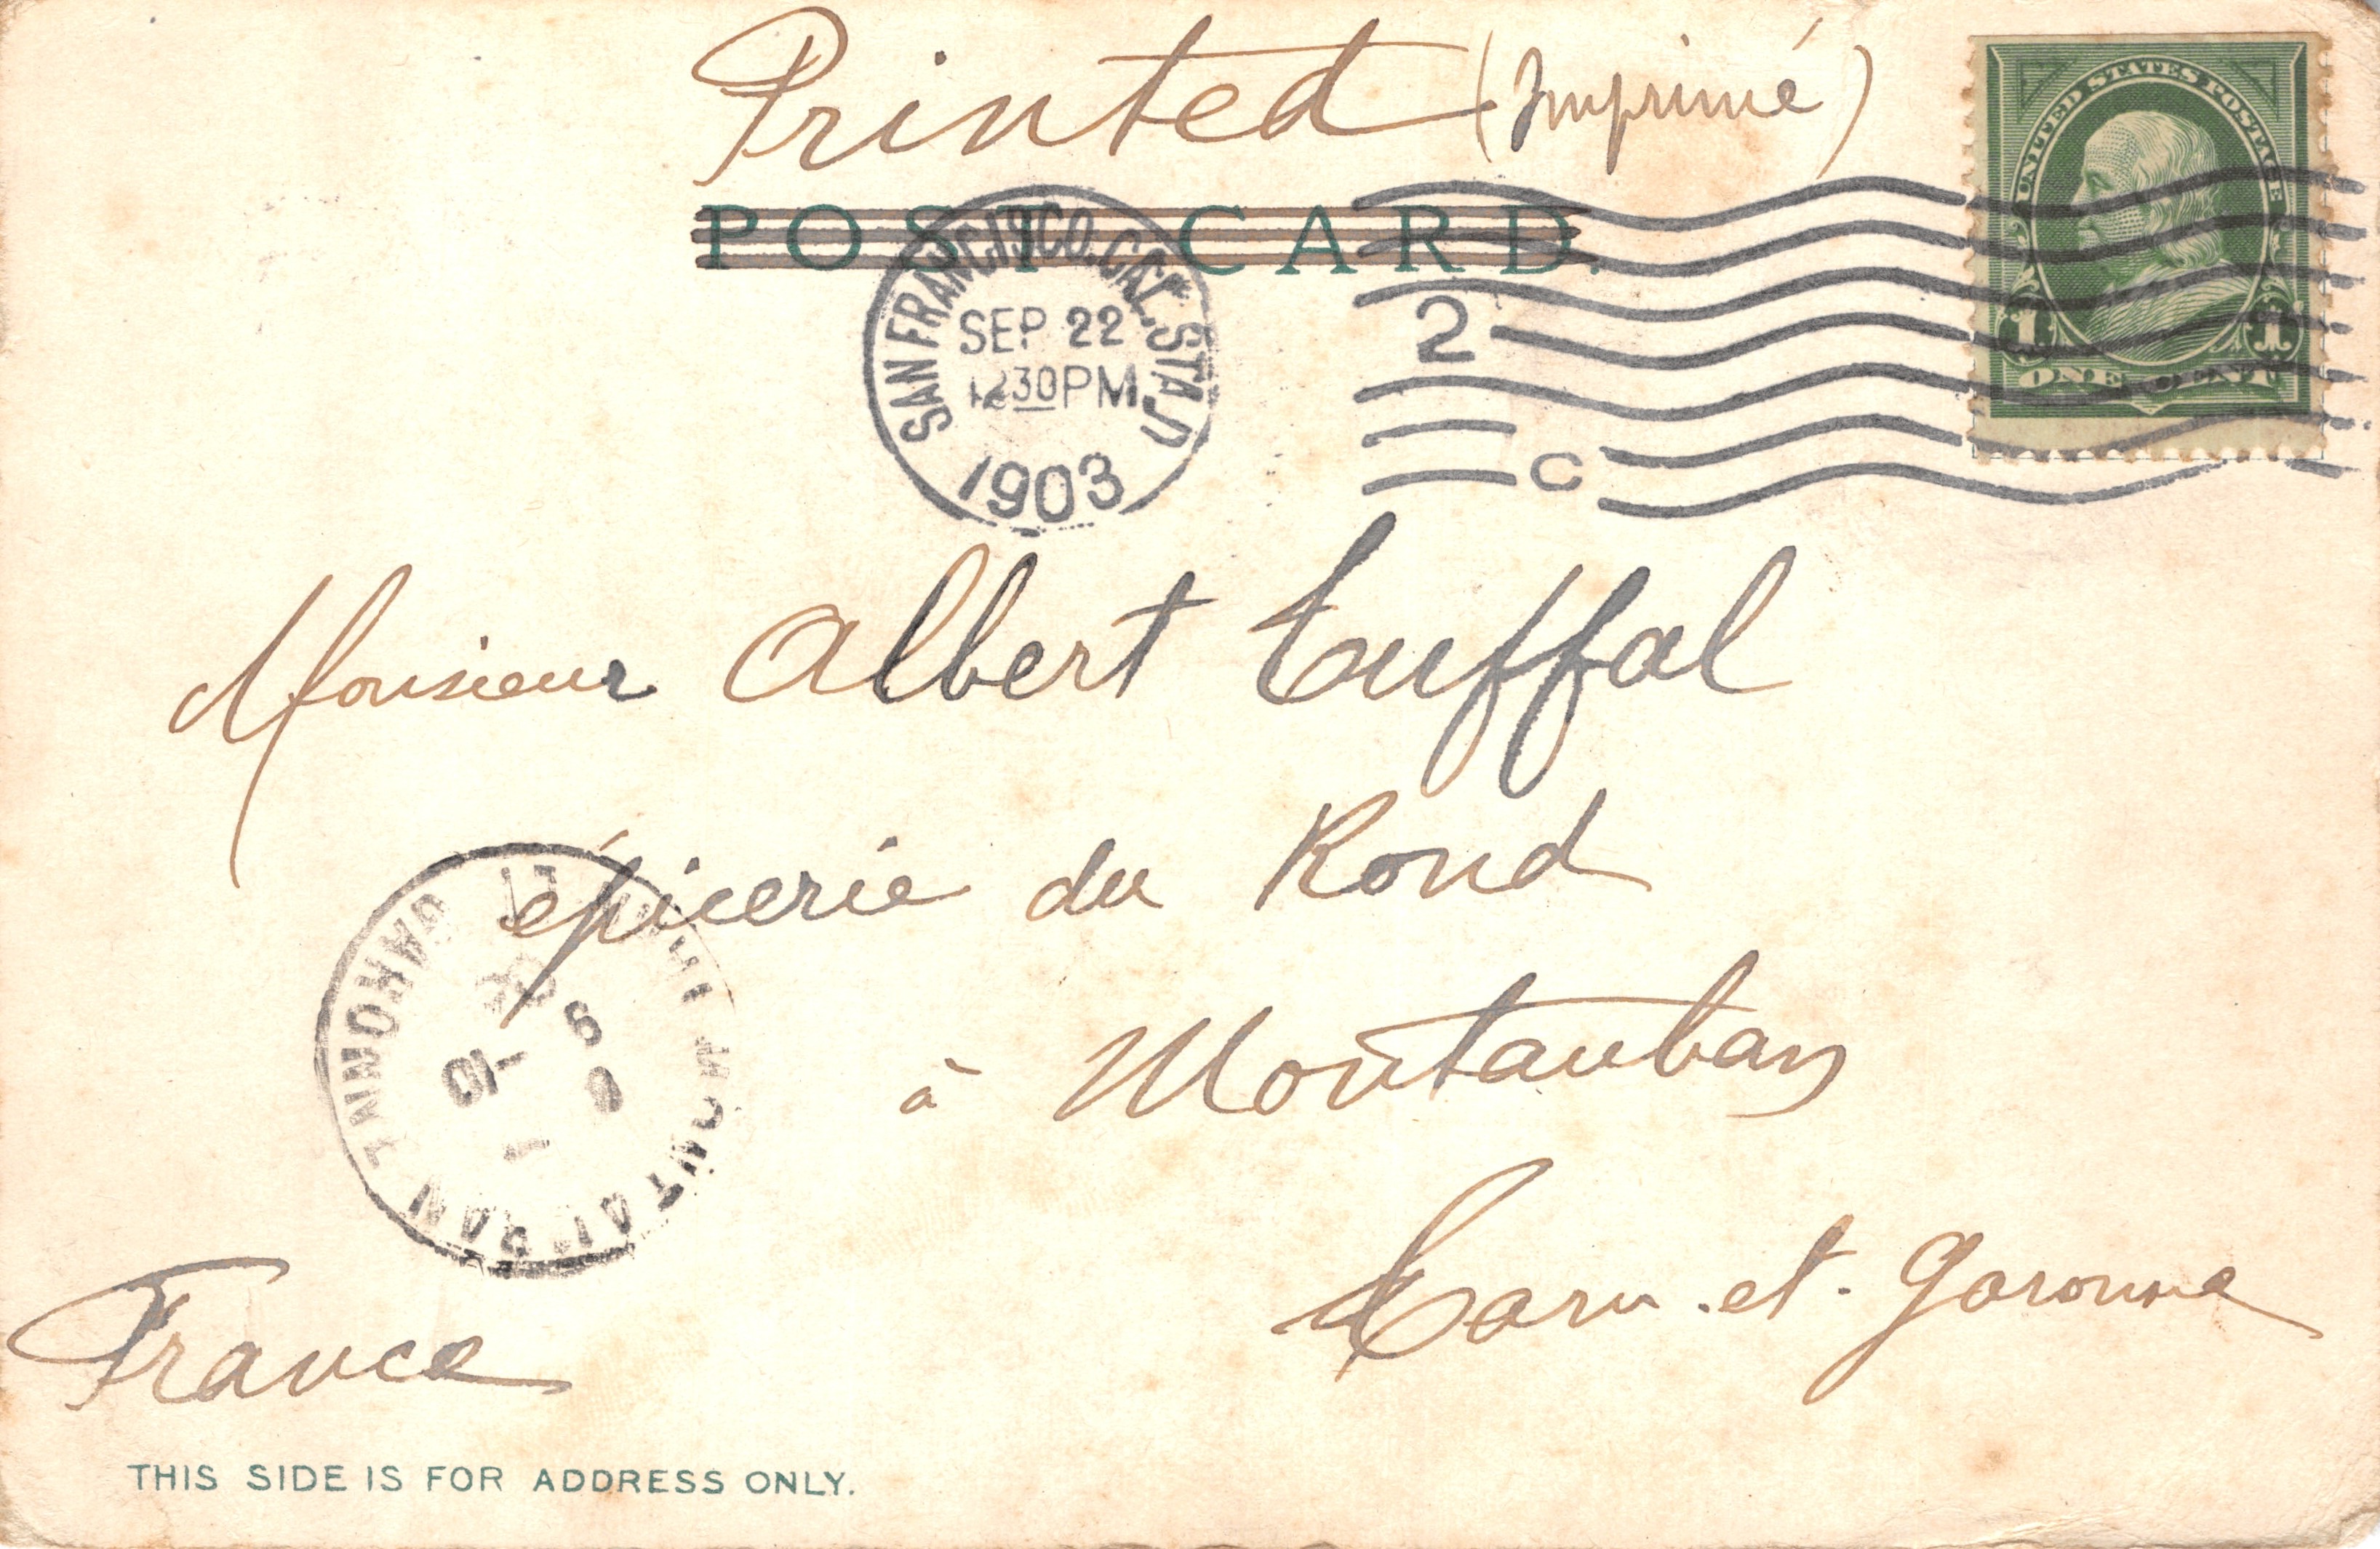 Printed (Imprimé)
POST CARD.
UNITED STATES POSTAGE
1 1
ONE CENT
SAN FRANCISCO, CAL. STA. D
SEP 22
1230PM
1903
2
C
Monsieur Albert Tuffal
épicerie du Rond
à Montauban
Tarn-et-Garonne
France
MONTAUBAN
THIS SIDE IS FOR ADDRESS ONLY.